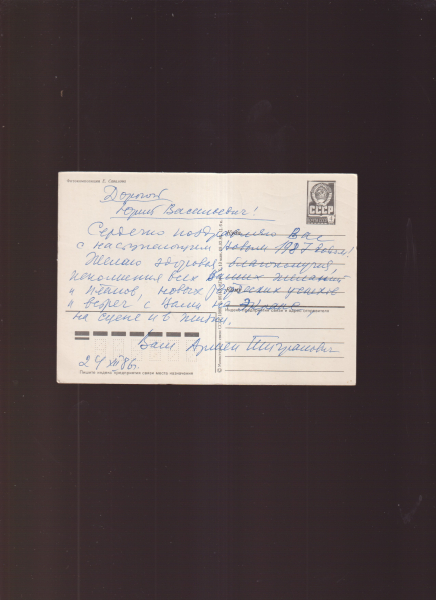 Фотокомпозиция Е. Савалова
СССР
Дорогой
Юрий Васильевич!
Сердечно поздравляю Вас
с наступающим Новым 1987 годом!
Желаю здоровья, благополучия,
исполнения всех Ваших желаний
и планов, новых творческих успехов
и встреч с Вами на Экране
на сцене и в жизни.
Ваш Армен Тигранович
24 XII 86 г.
Индекс предприятия связи и адрес отправителя
Пишите индекс предприятия связи места назначения